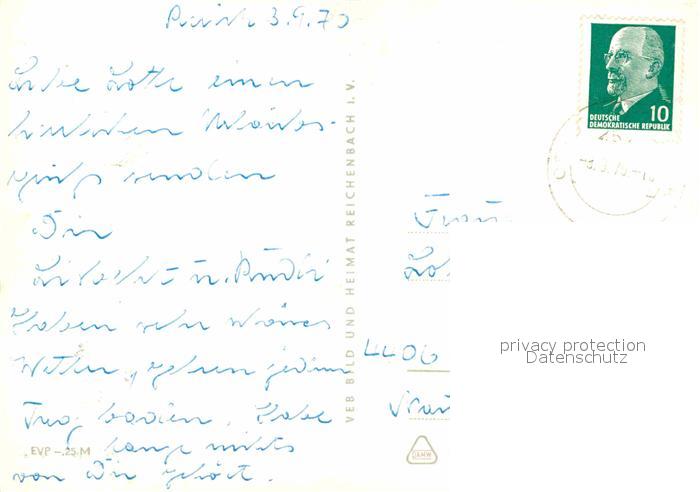 3.9.70
Liebe Lotte einen
herzlichen Urlaubs-
senden
Dir
u. Rudi
Haben sehr
Wetter, gehen jeden
Tag baden. Habe
lange nichts
von Dir gehört.
EVP -.25 M
VEB BILD UND HEIMAT REICHENBACH I. V.
DEUTSCHE
DEMOKRATISCHE REPUBLIK
10
Frau
4406
DAMW
privacy protection
Datenschutz